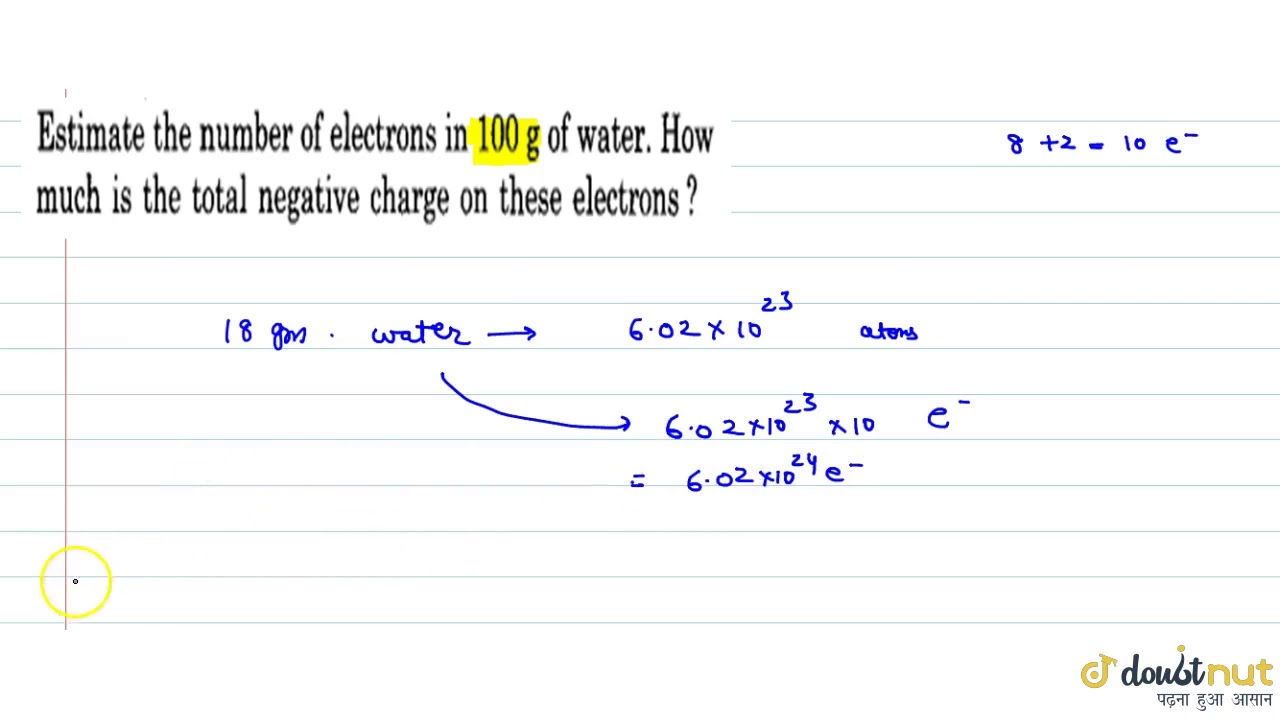 Estimate the number of electrons in 100 g of water. How
much is the total negative charge on these electrons ?
8 + 2 = 10 e⁻
18 gms . water → 6.02 × 10²³ atoms
→ 6.02 × 10²³ × 10 e⁻
= 6.02 × 10²⁴ e⁻
doubtnut
पढ़ना हुआ आसान